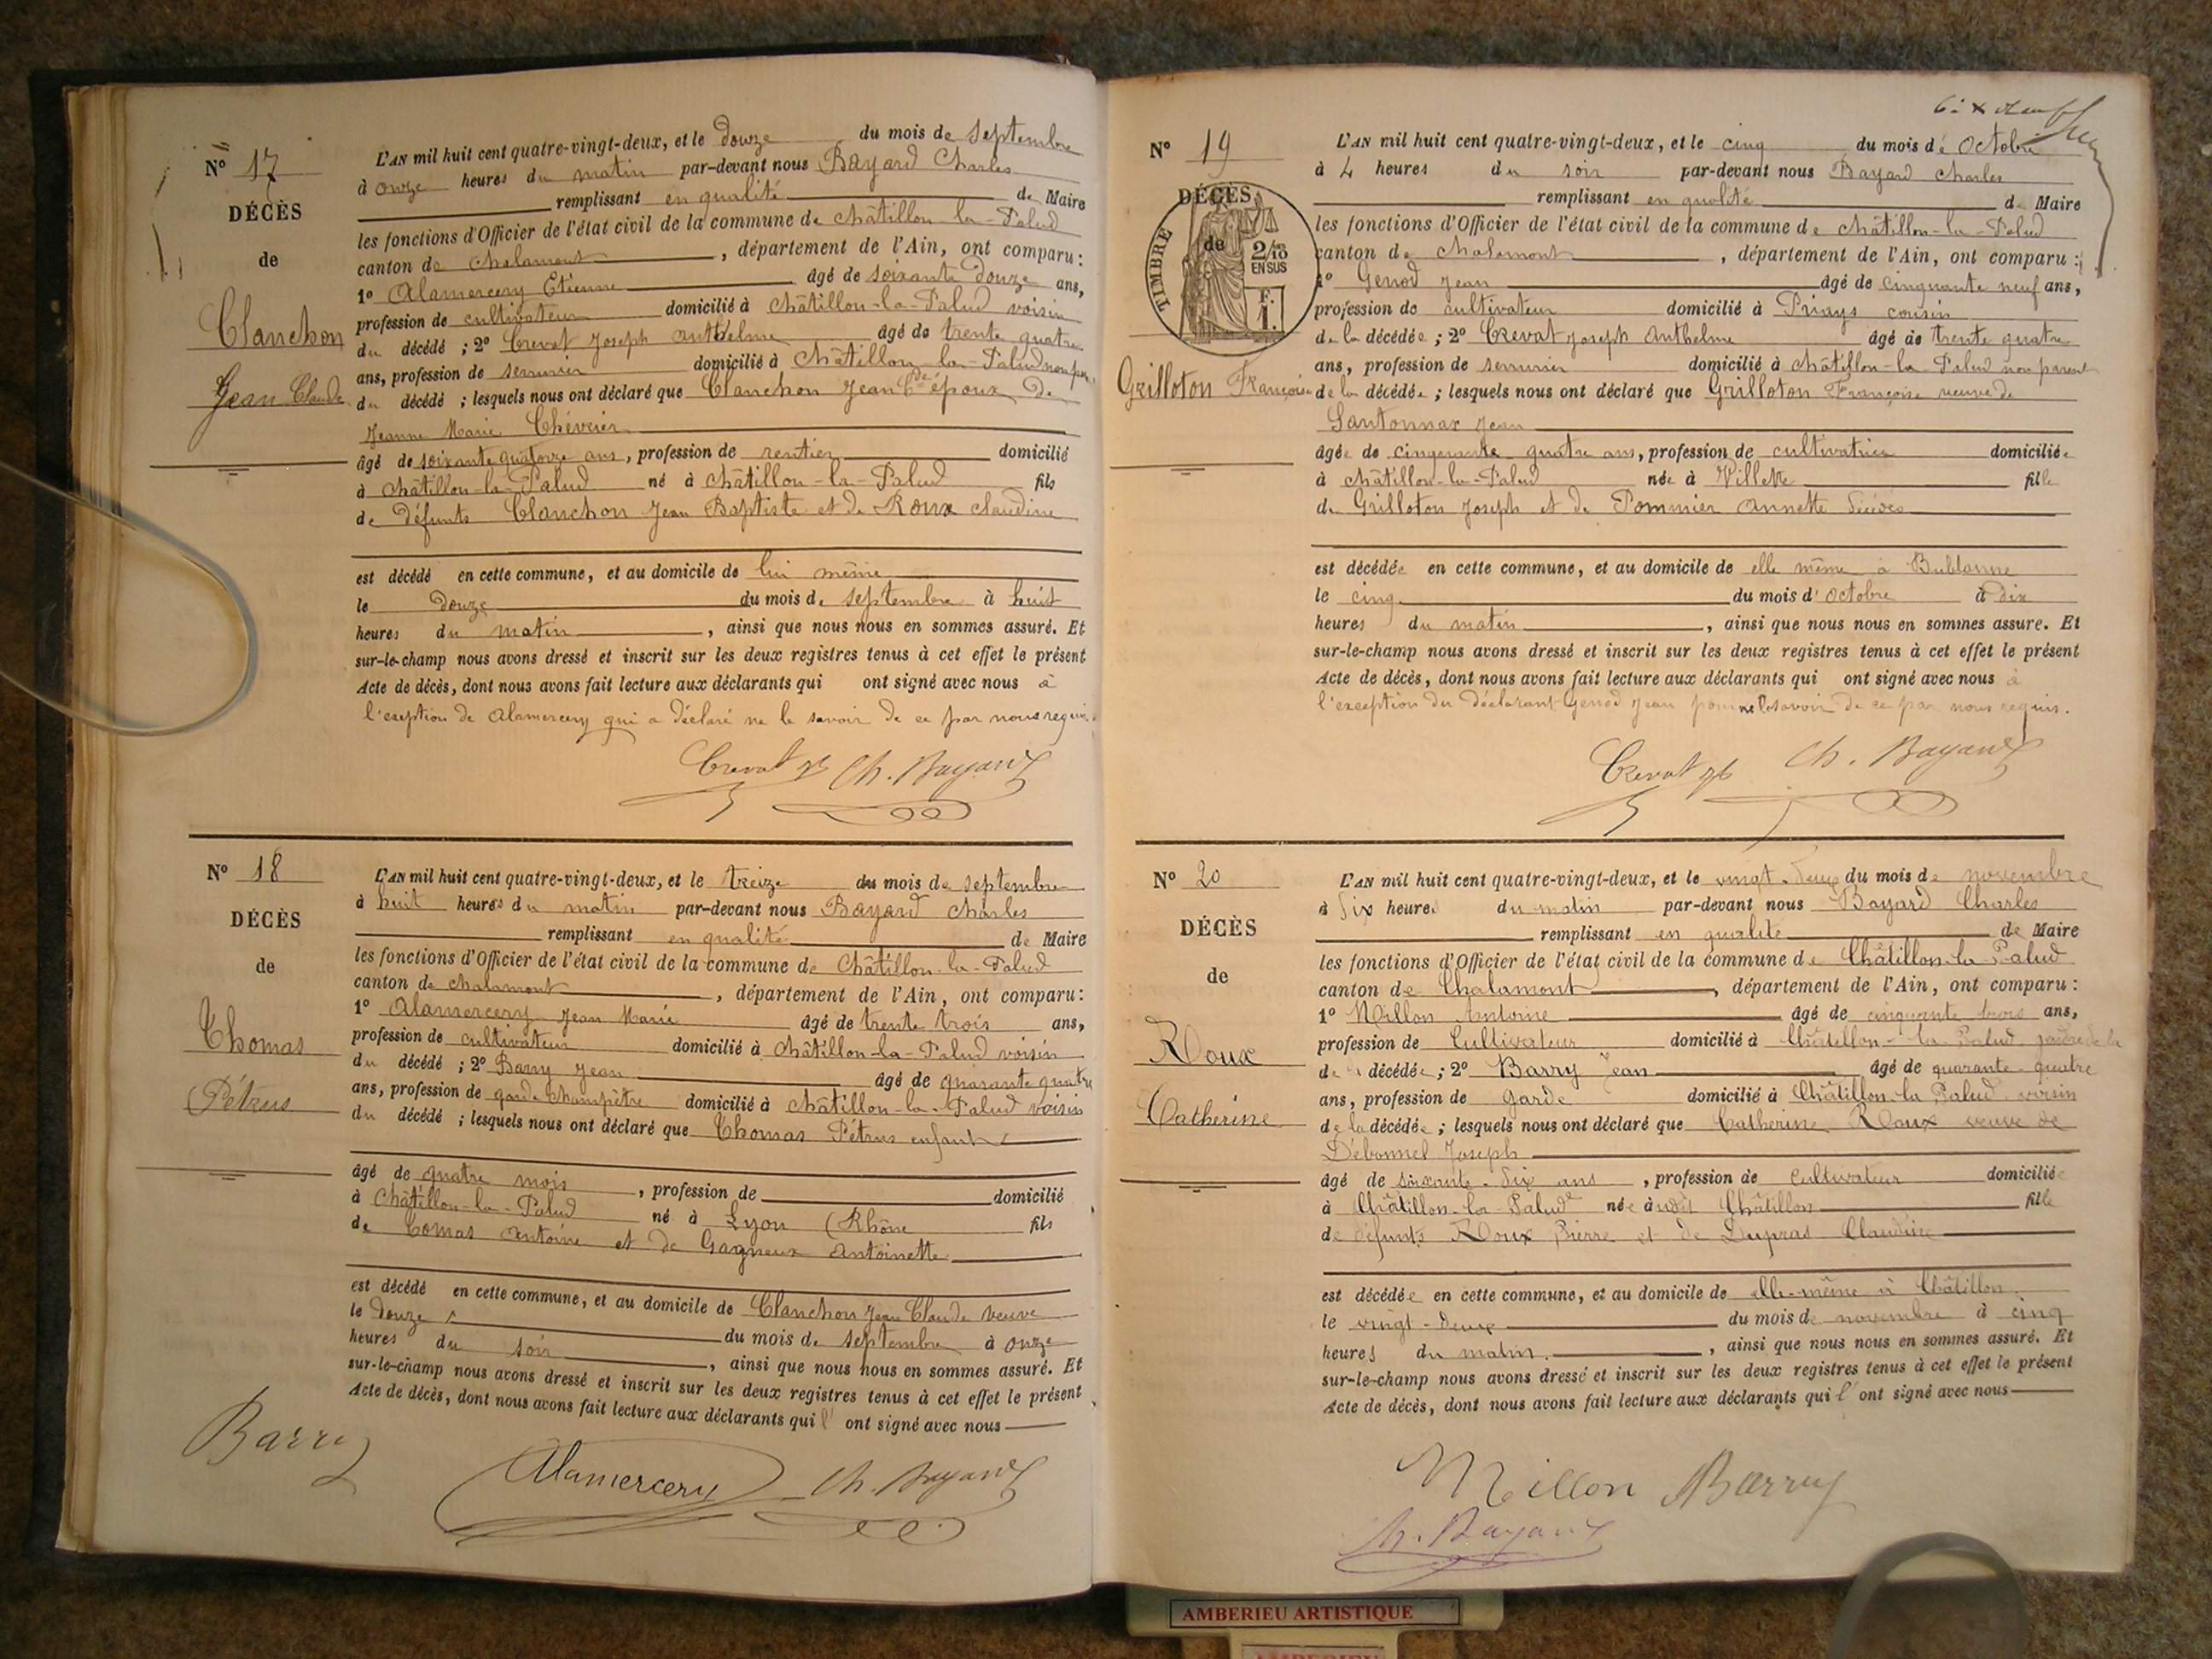 Nº 17
DÉCÈS
de
Clanchon
Jean Claude
L'AN mil huit cent quatre-vingt-deux, et le douze du mois de septembre
à onze heures du matin par-devant nous Bayard Charles
remplissant en qualité de Maire
les fonctions d'Officier de l'état civil de la commune de Châtillon-la-Palud
canton de Chalamont, département de l'Ain, ont comparu :
1º Alamercery Etienne âgé de soixante douze ans,
profession de cultivateur domicilié à Châtillon-la-Palud voisin
du décédé ; 2º Crevat Joseph Anthelme âgé de trente quatre
ans, profession de serrurier domicilié à Châtillon-la-Palud non par.
du décédé ; lesquels nous ont déclaré que Clanchon Jean Cde époux de
Jeanne Marie Chévrier
âgé de soixante quatorze ans, profession de rentier domicilié
à Châtillon-la-Palud né à Châtillon-la-Palud fils
de défunts Clanchon Jean Baptiste et de Roux Claudine
est décédé en cette commune, et au domicile de lui même
le douze du mois de septembre à huit
heures du matin, ainsi que nous nous en sommes assuré. Et
sur-le-champ nous avons dressé et inscrit sur les deux registres tenus à cet effet le présent
Acte de décès, dont nous avons fait lecture aux déclarants qui ont signé avec nous à
l'exeption de Alamercery qui a déclaré ne le savoir de ce par nous requis.
Crevat Jh Ch. Bayard
Nº 18
DÉCÈS
de
Thomas
Pétrus
L'AN mil huit cent quatre-vingt-deux, et le treize du mois de septembre
à huit heures du matin par-devant nous Bayard Charles
remplissant en qualité de Maire
les fonctions d'Officier de l'état civil de la commune de Châtillon-la-Palud
canton de Chalamont, département de l'Ain, ont comparu :
1º Alamercery Jean Marie âgé de trente trois ans,
profession de cultivateur domicilié à Châtillon-la-Palud voisin
du décédé ; 2º Barry Jean âgé de quarante quatre
ans, profession de garde champêtre domicilié à Châtillon-la-Palud voisin
du décédé ; lesquels nous ont déclaré que Thomas Pétrus enfant
âgé de quatre mois, profession de domicilié
à Châtillon-la-Palud né à Lyon (Rhône fils
de Comas Antoine et de Gagneux Antoinette
est décédé en cette commune, et au domicile de Clanchon Jean Claude veuve
le douze du mois de septembre à onze
heures du soir, ainsi que nous nous en sommes assuré. Et
sur-le-champ nous avons dressé et inscrit sur les deux registres tenus à cet effet le présent
Acte de décès, dont nous avons fait lecture aux déclarants qui l' ont signé avec nous
Barry Alamercery Ch. Bayard
Nº 19
DÉCÈS
de
TIMBRE
2/10
EN SUS
F.
1.
Grilloton Françoise
L'AN mil huit cent quatre-vingt-deux, et le cinq du mois de Octobre
à 4 heures du soir par-devant nous Bayard Charles
remplissant en qualité de Maire
les fonctions d'Officier de l'état civil de la commune de Châtillon-la-Palud
canton de Chalamont, département de l'Ain, ont comparu :
1º Genod Jean âgé de cinquante neuf ans,
profession de cultivateur domicilié à Priays cousin
de la décédée ; 2º Crevat Joseph Anthelme âgé de trente quatre
ans, profession de serrurier domicilié à Châtillon-la-Palud non parent
de la décédée ; lesquels nous ont déclaré que Grilloton Françoise veuve de
Santonnax Jean
âgée de cinquante quatre ans, profession de cultivatrice domiciliée
à Châtillon-la-Palud née à Villette fille
de Grilloton Joseph et de Pommier Annette décédés
est décédée en cette commune, et au domicile de elle même à Bublanne
le cinq du mois d'octobre à dix
heures du matin, ainsi que nous nous en sommes assuré. Et
sur-le-champ nous avons dressé et inscrit sur les deux registres tenus à cet effet le présent
Acte de décès, dont nous avons fait lecture aux déclarants qui ont signé avec nous à
l'exception du déclarant Genod Jean pour ne le savoir de ce par nous requis.
Crevat Jh Ch. Bayard
Nº 20
DÉCÈS
de
Roux
Catherine
L'AN mil huit cent quatre-vingt-deux, et le vingt-deux du mois de novembre
à six heures du matin par-devant nous Bayard Charles
remplissant en qualité de Maire
les fonctions d'Officier de l'état civil de la commune de Châtillon-la-Palud
canton de Chalamont, département de l'Ain, ont comparu :
1º Millon Antoine âgé de cinquante trois ans,
profession de Cultivateur domicilié à Châtillon-la-Palud gendre de la
de décédée ; 2º Barry Jean âgé de quarante-quatre
ans, profession de garde domicilié à Châtillon-la-Palud voisin
de la décédée ; lesquels nous ont déclaré que Catherine Roux veuve de
Débonnel Joseph
âgé de soixante-dix ans, profession de cultivateur domiciliée
à Châtillon-la-Palud née à udit Châtillon fille
de défunts Roux Pierre et de Dupras Claudine
est décédée en cette commune, et au domicile de elle-même à Châtillon
le vingt-deux du mois de novembre à cinq
heures du matin, ainsi que nous nous en sommes assuré. Et
sur-le-champ nous avons dressé et inscrit sur les deux registres tenus à cet effet le présent
Acte de décès, dont nous avons fait lecture aux déclarants qui l' ont signé avec nous
Millon Barry
Ch. Bayard
AMBERIEU ARTISTIQUE
AMBERIEU